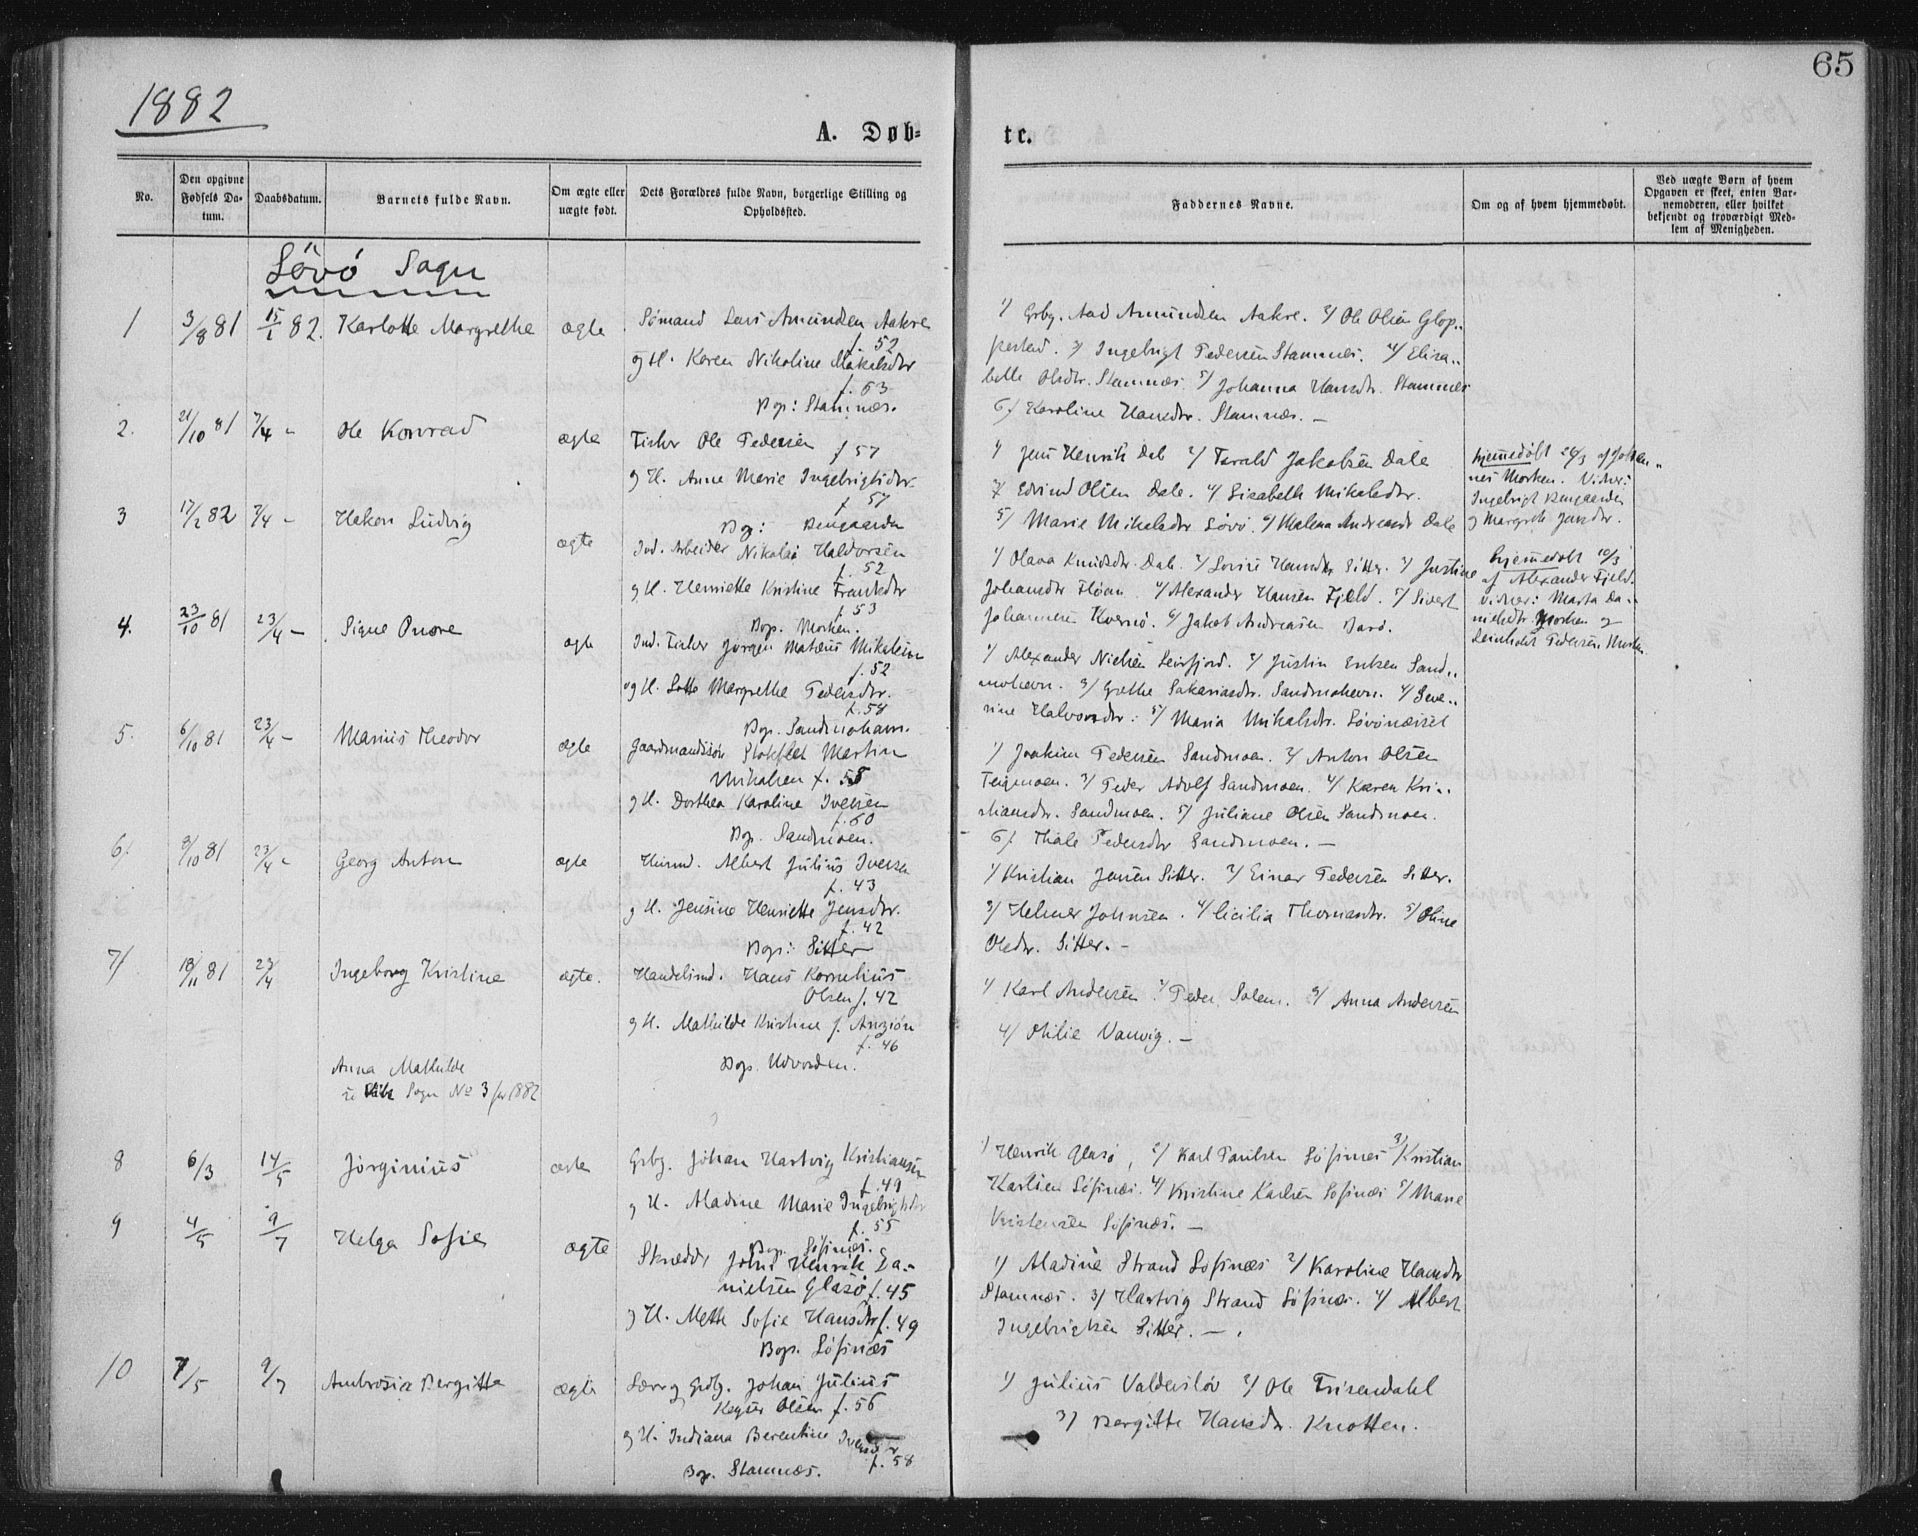 65
1882
A. Døb-
tc.
No.
Den opgivne Fødsels Da-tum.
Daabsdatum.
Barnets fulde Navn.
Om ægte eller uægte født.
Dets Forældres fulde Navn, borgerlige Stilling og Opholdssted.
Faddernes Navne.
Om og af hvem hjemmedøbt.
Ved uægte Børn af hvem Opgaven er skeet, enten Bar-nemoderen, eller hvilket bekjendt og troværdigt Med-lem af Menigheden.
Lövö Sogn
1 3/8 81 15/1 82. Karlotte Margrethe ægte Sömand Lars Amundsen Aakre
f. 52
og H. Karen Nikoline Mikalsdtr
f. 53
Bop: Stamnæs.
1/ Grbg. Aad Amundsen Aakre. 2/ Ole Olsen Glop..
pestad. 3/ Ingebrigt Pedersen Stamnes. 4/ Elisa..
beth Olsdtr. Stamnæs. 5/ Johanna Hansdtr. Stamnes
6/ Karoline Hansdtr. Stamnæs. —
2. 21/10 81 7/4 - Ole Konrad ægte Fisker Ole Pedersen
f 57
og H. Anne Marie Ingebrigtsdtr.
f. 57
Bop:
1/ Jens Henrik Dale 2/ Tarald Jakobsen Dale
3/ Edvind Olsen Dale. 4/ Lisabeth Mikalsdtr.
5/ Marie Mikalsdtr Lövö. 6/ Helena Andreasdtr Dale
hjemmedöbt 26/3 af Johan..
nes Morken. Vidner:
Ingebrigt
og Margrete Jensdtr.
3 17/2 82 7/4 - Hakon Ludvig ægte Ind. Arbeider Nikolai Haldorsen
f. 52
og H. Henriette Kristine Frantsdtr
f. 53
Bop. Morken.
1/ Olava Knudsdtr. Dale. 2/ Lovise Hansdtr Sitter. 3/ Justine
Johansdtr Floan. 4/ Alexander Hansen Fjeld. 5/ Sivert
Johannesen Kvernö. 6/ Jakob Andreasen
hjemmedöbt 10/3
af Alexander Fjeld.
Vidner: Marta Da..
nielsdtr Morken og
Reinholdt Pedersen Morken.
4. 23/10 81 23/4 - Signe Onore ægte Ind. Fisker Jörgen Mateus Mikalsen
f. 52
og H. Lotte Margrethe Pedersdtr.
f. 54
Bop. Sandmohavn.
1/ Alexander Nielsen Leirfjord. 2/ Justin Eriksen Sand..
mohavn. 3/ Grethe Sakariasdtr. Sandmohavn. 4/ Seve..
rine Halvorsdtr. 5/ Maria Mikalsdtr. Lövönæsset
5. 6/10 81 23/4 - Marius Theodor ægte Gaardmandssön Stokflet Martin
Mikalsen f. 55
og H. Dorthea Karoline Iversen
f. 60
Bop. Sandmoen.
1/ Joakim Pedersen Sandmoen. 2/ Anton Olsen
Teigmoen. 3/ Peder Adolf Sandmoen. 4/ Karen Kri..
stiansdr. Sandmoen. 5/ Juliane Olsen Sandmoen.
6/ Thale Pedersdtr Sandmoen. —
6/ 9/10 81 23/4 - Georg Anton ægte Husmd. Albert Julius Iversen
f. 43
og H. Jensine Henriette Jensdtr.
f. 42
Bop: Sitter
1/ Kristian Jansen Sitter. 2/ Einar Pedersen Sitter.
3/ Helmer Johnsen. 4/ Cicilia Thomasdtr. 5/ Oline
Olsdtr. Sitter. -
7/ 18/11 81 23/4 Ingeborg Kristine ægte. Handelsmd. Hans Kornelius
Olsen f. 42
og H. Mathilde Kristine f. Anzjön
f. 46
Bop. Udvorden.
1/ Karl Andersen 2/ Peder Salem. 3/ Anna Andersen
4/ Otilie Vanvig. —
Anna Mathilde
Sogn No 3 for 1882
8 6/3 14/5 Jörginius ægte Grbg. Johan Hartvig Kristiansen
f. 49
og H. Aladine Marie Ingebrigtsdtr
f. 55
Bop. Löfsnæs.
1/ Henrik Glasö, 2/ Karl Paulsen Löfsnæs 3/ Kristian
Karlsen Löfsnæs. 4/ Kristine Karlsen Löfsnæs 5/ Marie
Kristensen Löfsnæs. —
9 4/5 9/7 Helga Sofie ægte Skrædder John Henrik Da..
nielsen Glasö f. 45
og H. Mette Sofie Hansdtr f. 49
Bop. Löfsnæs
1/ Aladine Strand Löfsnæs 2/ Karoline Hansdtr
Stamnæs. 3/ Hartvig Strand Löfsnæs. 4/ Albert
Ingebrigtsen Sitter. —.
10 7/5 9/7 Ambrosia Bergitte ægte Lærer og Grbg. Johan Julius
Keyser Olsen f. 56
og H. Indiana Berentine Iversdtr
f. 58
Bop. Stamnæs.
1/ Julius Valderslöv 2/ Ole Frisendahl
3/ Bergitte Hansdr. Knotten.